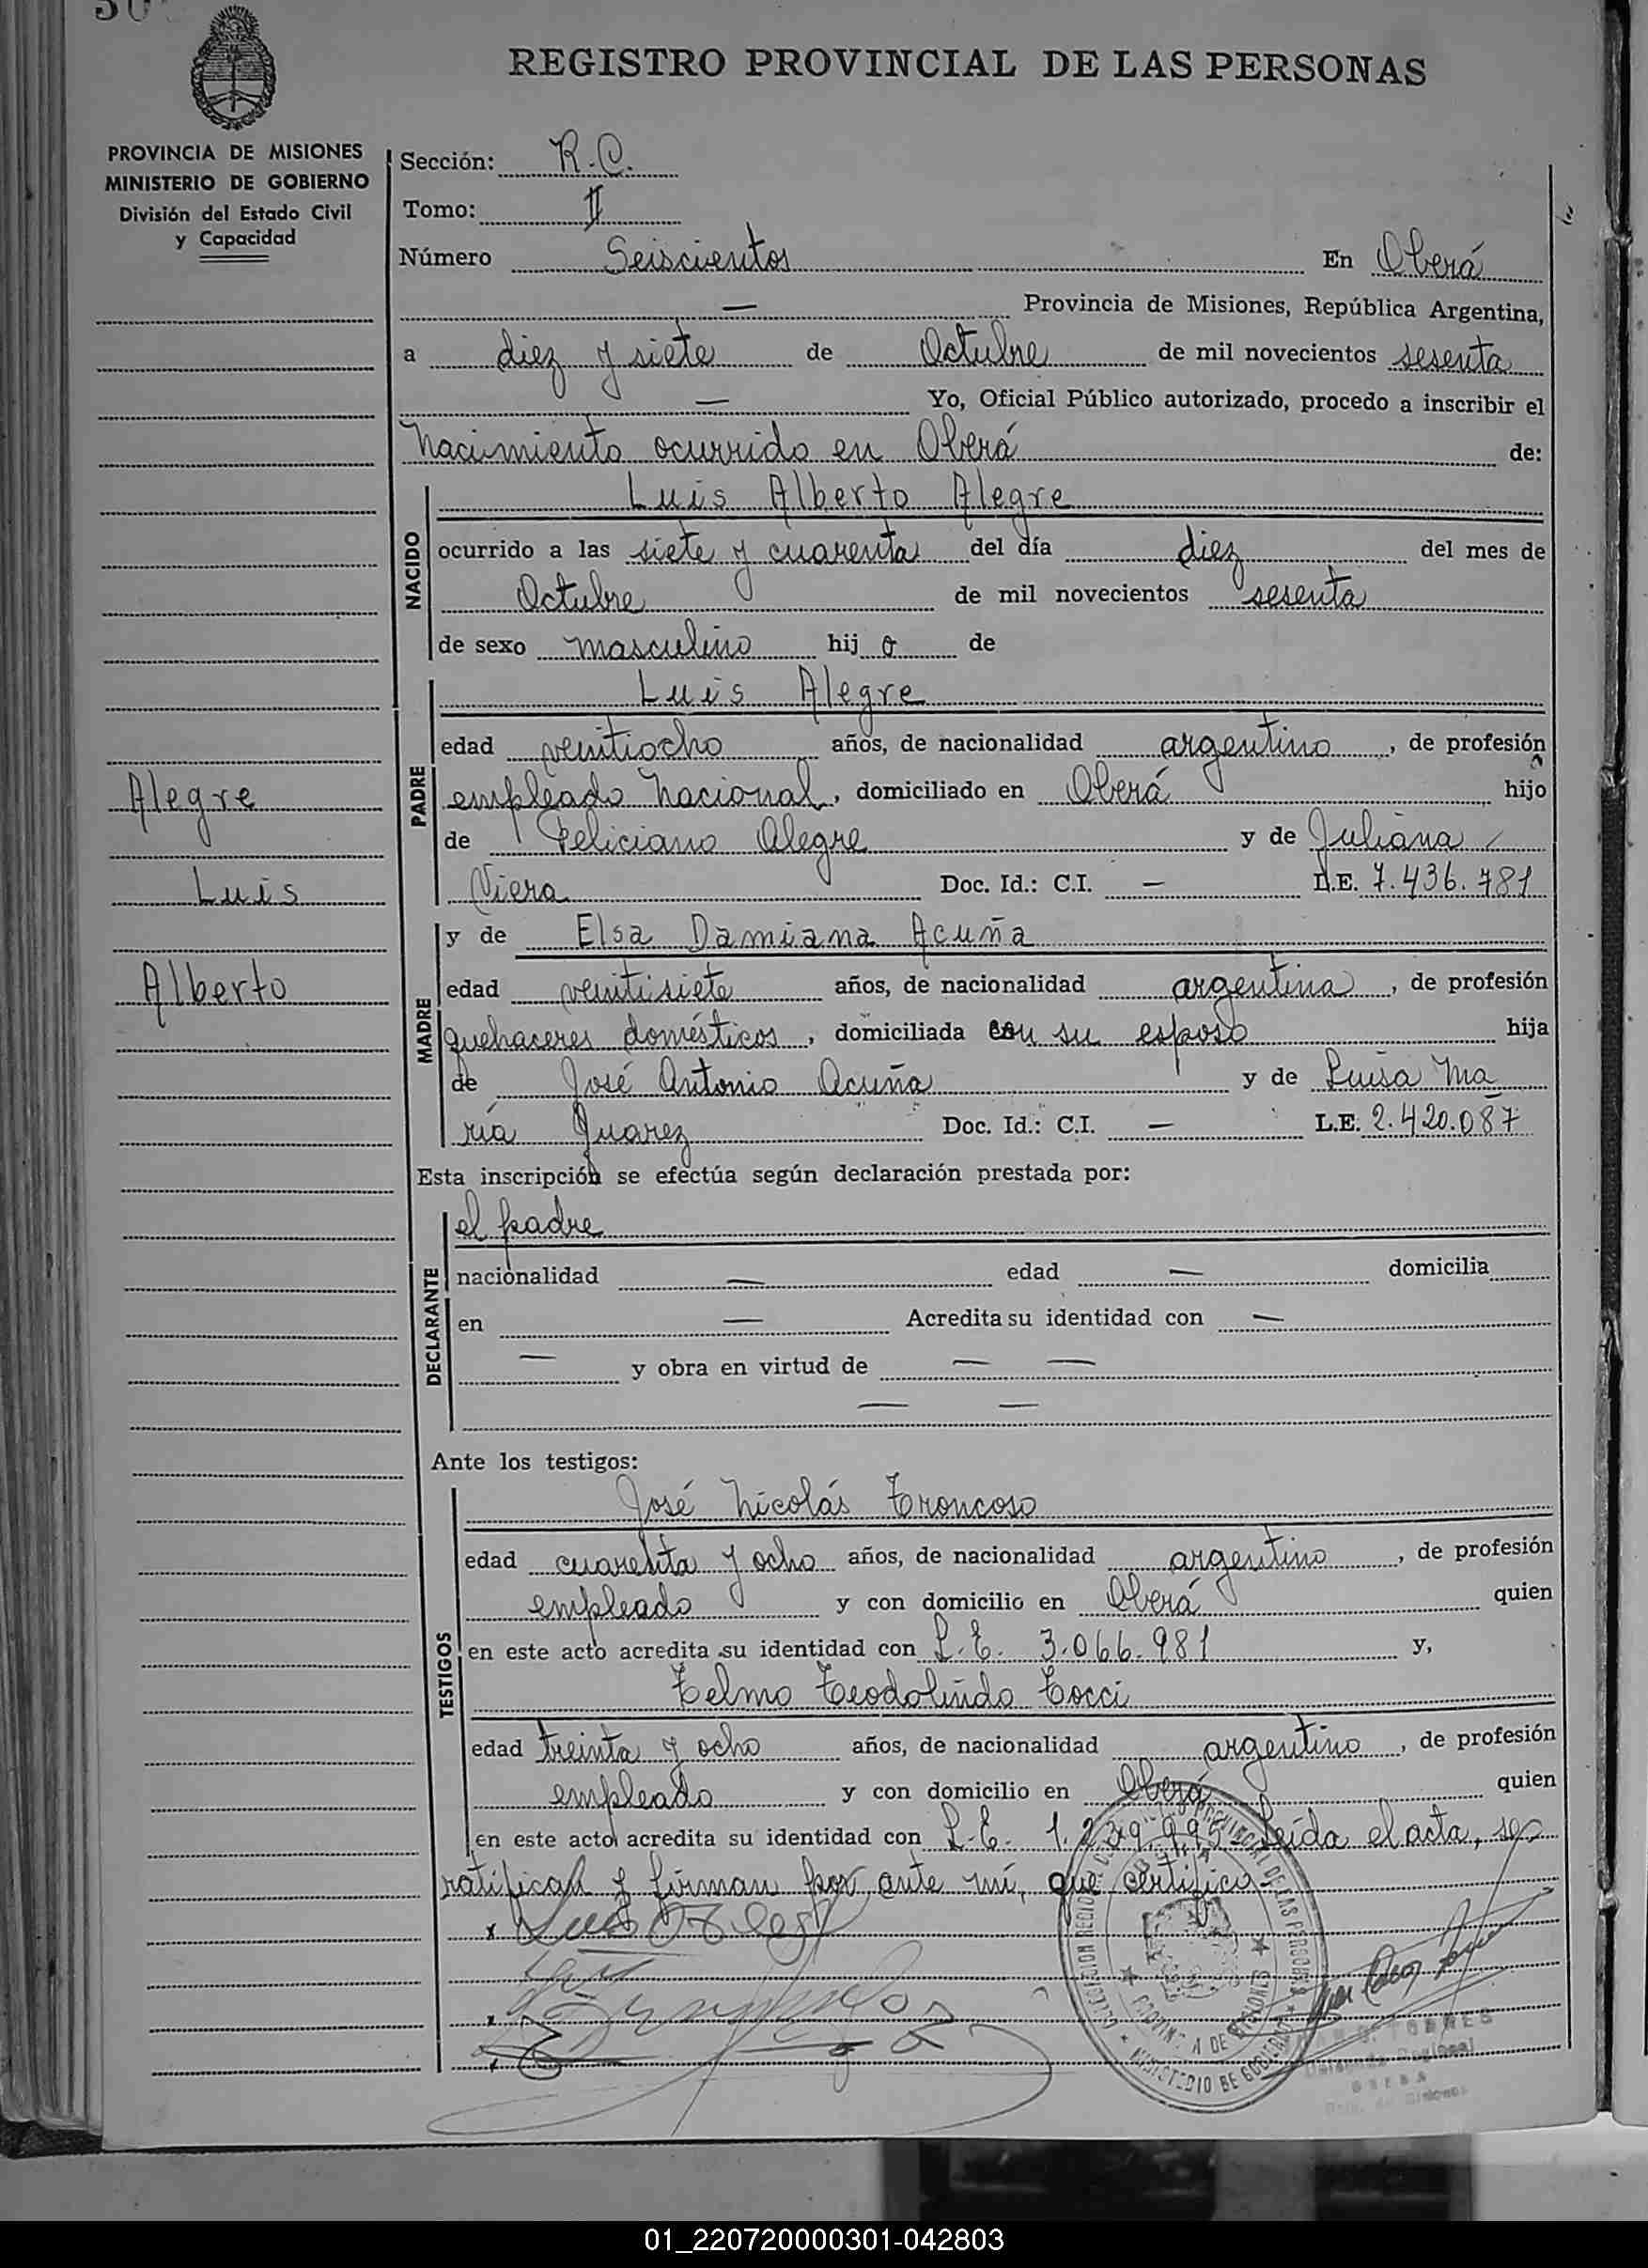 REGISTRO PROVINCIAL DE LAS PERSONAS
PROVINCIA DE MISIONES
MINISTERIO DE GOBIERNO
División del Estado Civil
y Capacidad
Sección: R.C.
Tomo: II
Número Seiscientos En Oberá
— Provincia de Misiones, República Argentina,
a diez y siete de Octubre de mil novecientos sesenta
— Yo, Oficial Público autorizado, procedo a inscribir el
Nacimiento ocurrido en Oberá de:
NACIDO
Luis Alberto Alegre
ocurrido a las siete y cuarenta del día diez del mes de
Octubre de mil novecientos sesenta
de sexo masculino hij o de
PADRE
Luis Alegre
edad veintiocho años, de nacionalidad argentino, de profesión
empleado Nacional, domiciliado en Oberá hijo
de Feliciano Alegre y de Juliana
Viera Doc. Id.: C.I. — L.E. 7.436.781
Alegre
Luis
Alberto
MADRE
y de Elsa Damiana Acuña
edad veintisiete años, de nacionalidad argentina, de profesión
quehaceres domésticos, domiciliada con su esposo hija
de José Antonio Acuña y de Luisa Ma
ría Juarez Doc. Id.: C.I. — L.E. 2.420.087
Esta inscripción se efectúa según declaración prestada por:
DECLARANTE
el padre
nacionalidad — edad — domicilia
en — Acredita su identidad con —
— y obra en virtud de — —
— —
Ante los testigos:
TESTIGOS
José Nicolás Troncoso
edad cuarenta y ocho años, de nacionalidad argentino, de profesión
empleado y con domicilio en Oberá quien
en este acto acredita su identidad con L.E. 3.066.981 y,
Telmo Teodolindo Tocci
edad treinta y ocho años, de nacionalidad argentino, de profesión
empleado y con domicilio en Oberá quien
en este acto acredita su identidad con L.E. Leída el acta, se
ratifican y firman por ante mí, que certifico
Luis Alegre
PROVINCIA DE MISIONES
MINISTERIO DE GOBIERNO
TORRES
01_220720000301-042803